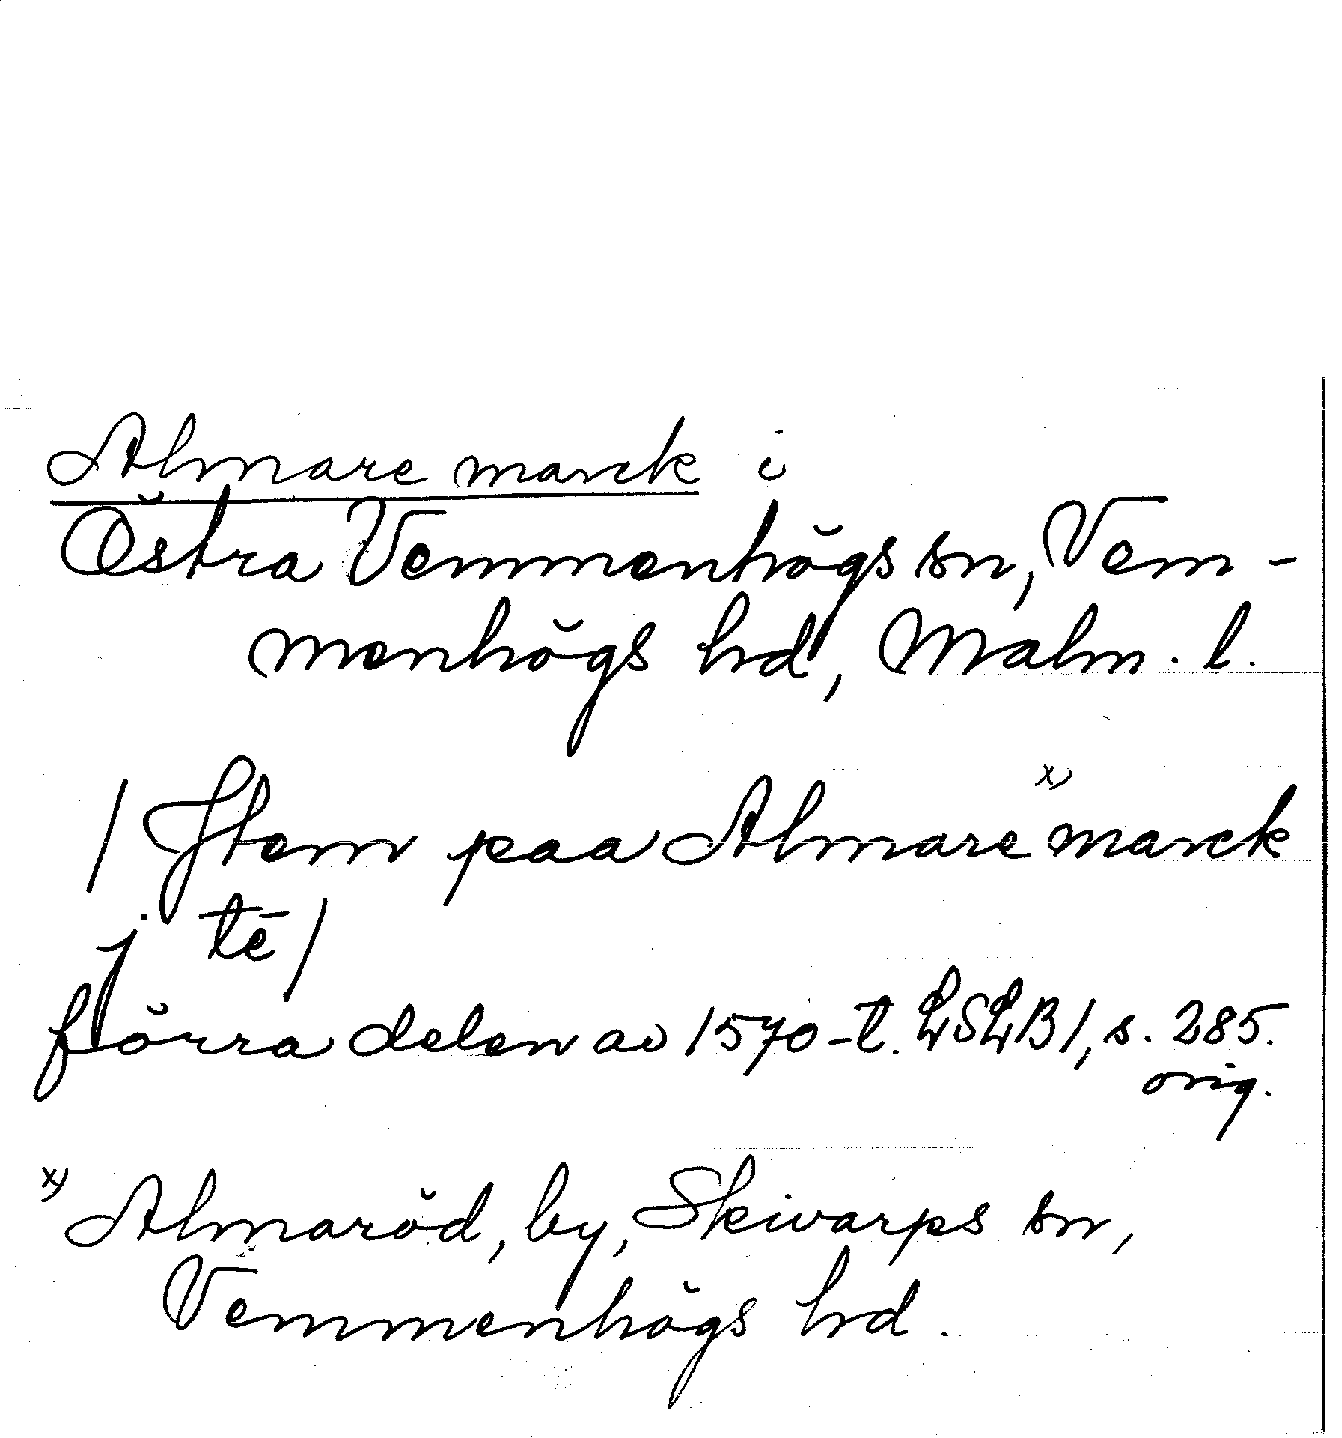 Almare marck i
Östra Vemmenhögs sn, Vem-
menhögs hd, Malm. l.
/ Jtem paa Almare x) marck
j tē /
förra delen av 1570-t. LSLB 1, s. 285.
orig.
x) Almaröd, by, Skivarps sn,
Vemmenhögs hd.